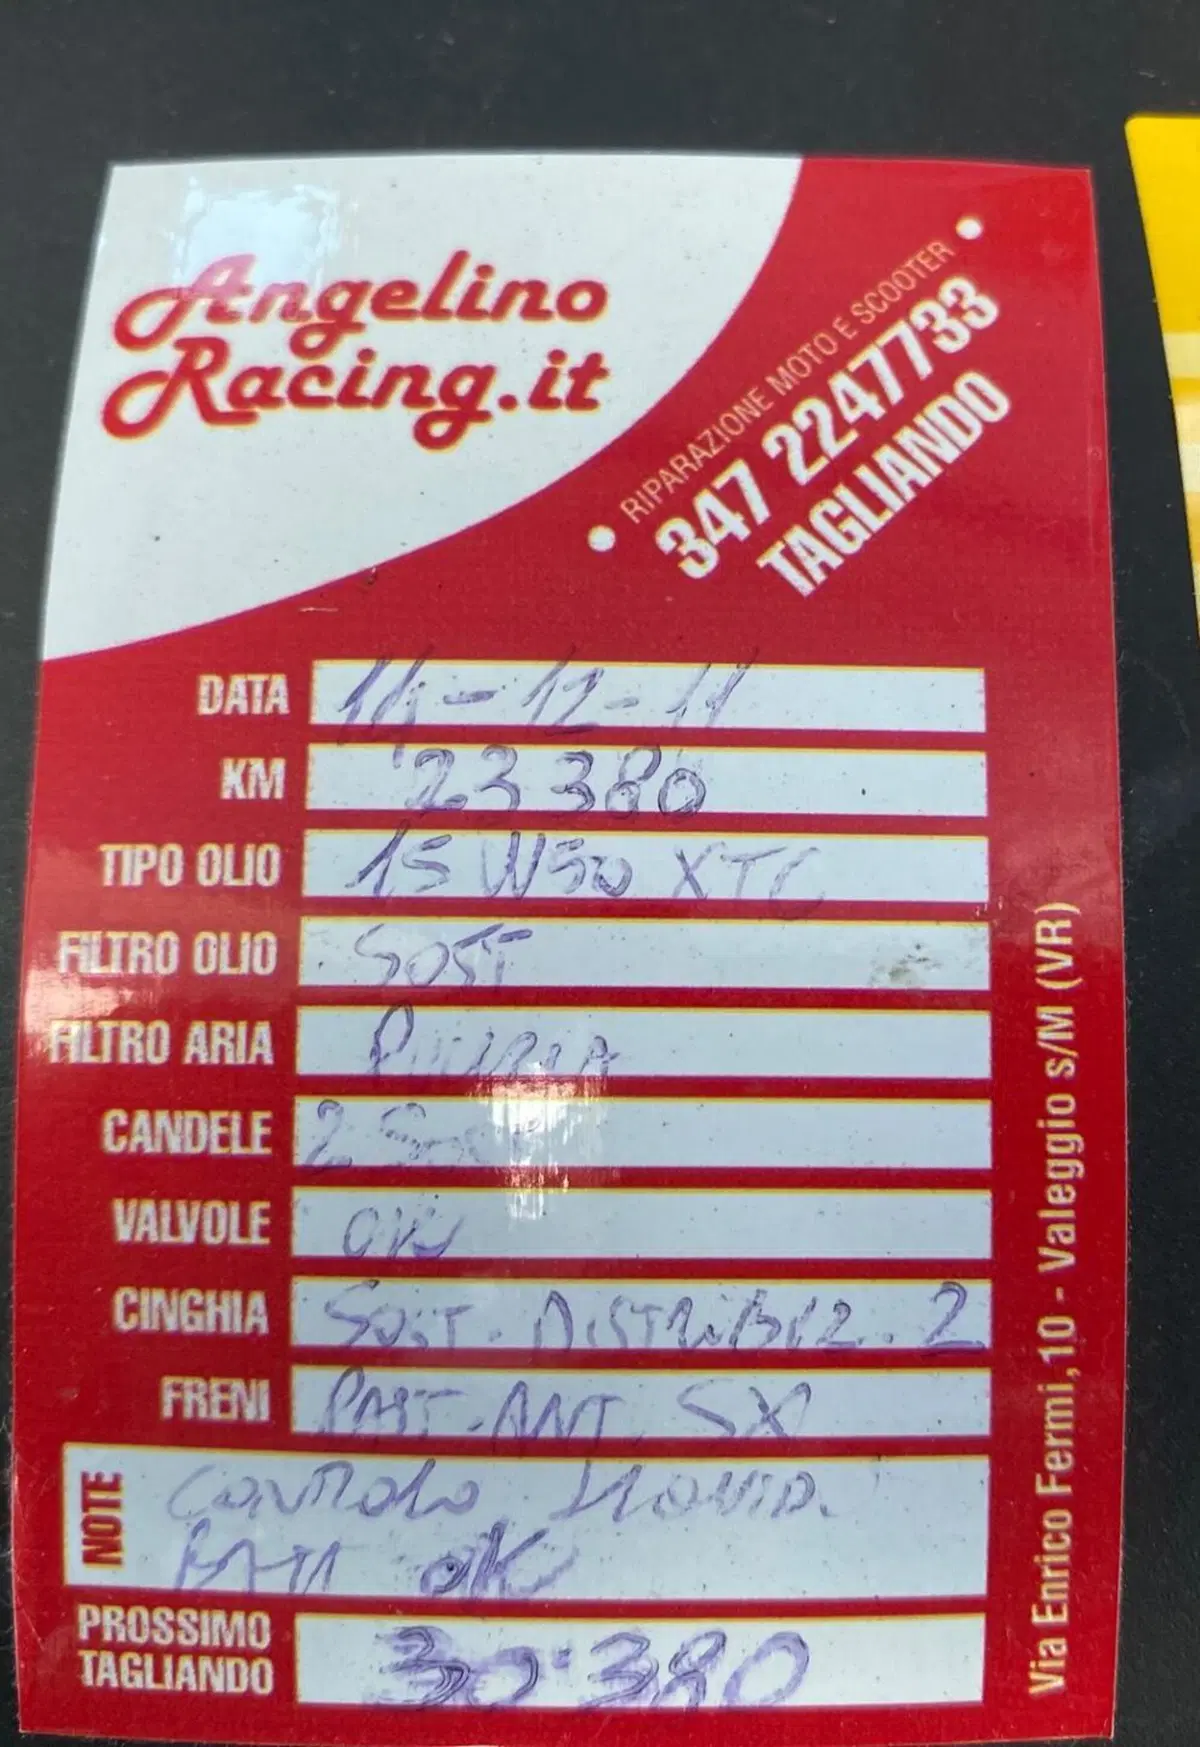 Angelino
Racing.it
RIPARAZIONE MOTO E SCOOTER
347 2247733
TAGLIANDO
DATA 14-12-11
KM 23380
TIPO OLIO 15W50 XTC
FILTRO OLIO SOST
FILTRO ARIA PULIZIA
CANDELE 2 SOST
VALVOLE OK
CINGHIA SOST. DISTRIBUZ. 2
FRENI PAST. ANT. SX
NOTE CONTROLO
BATT OK
PROSSIMO TAGLIANDO 30.380
Via Enrico Fermi, 10 - Valeggio s/M (VR)